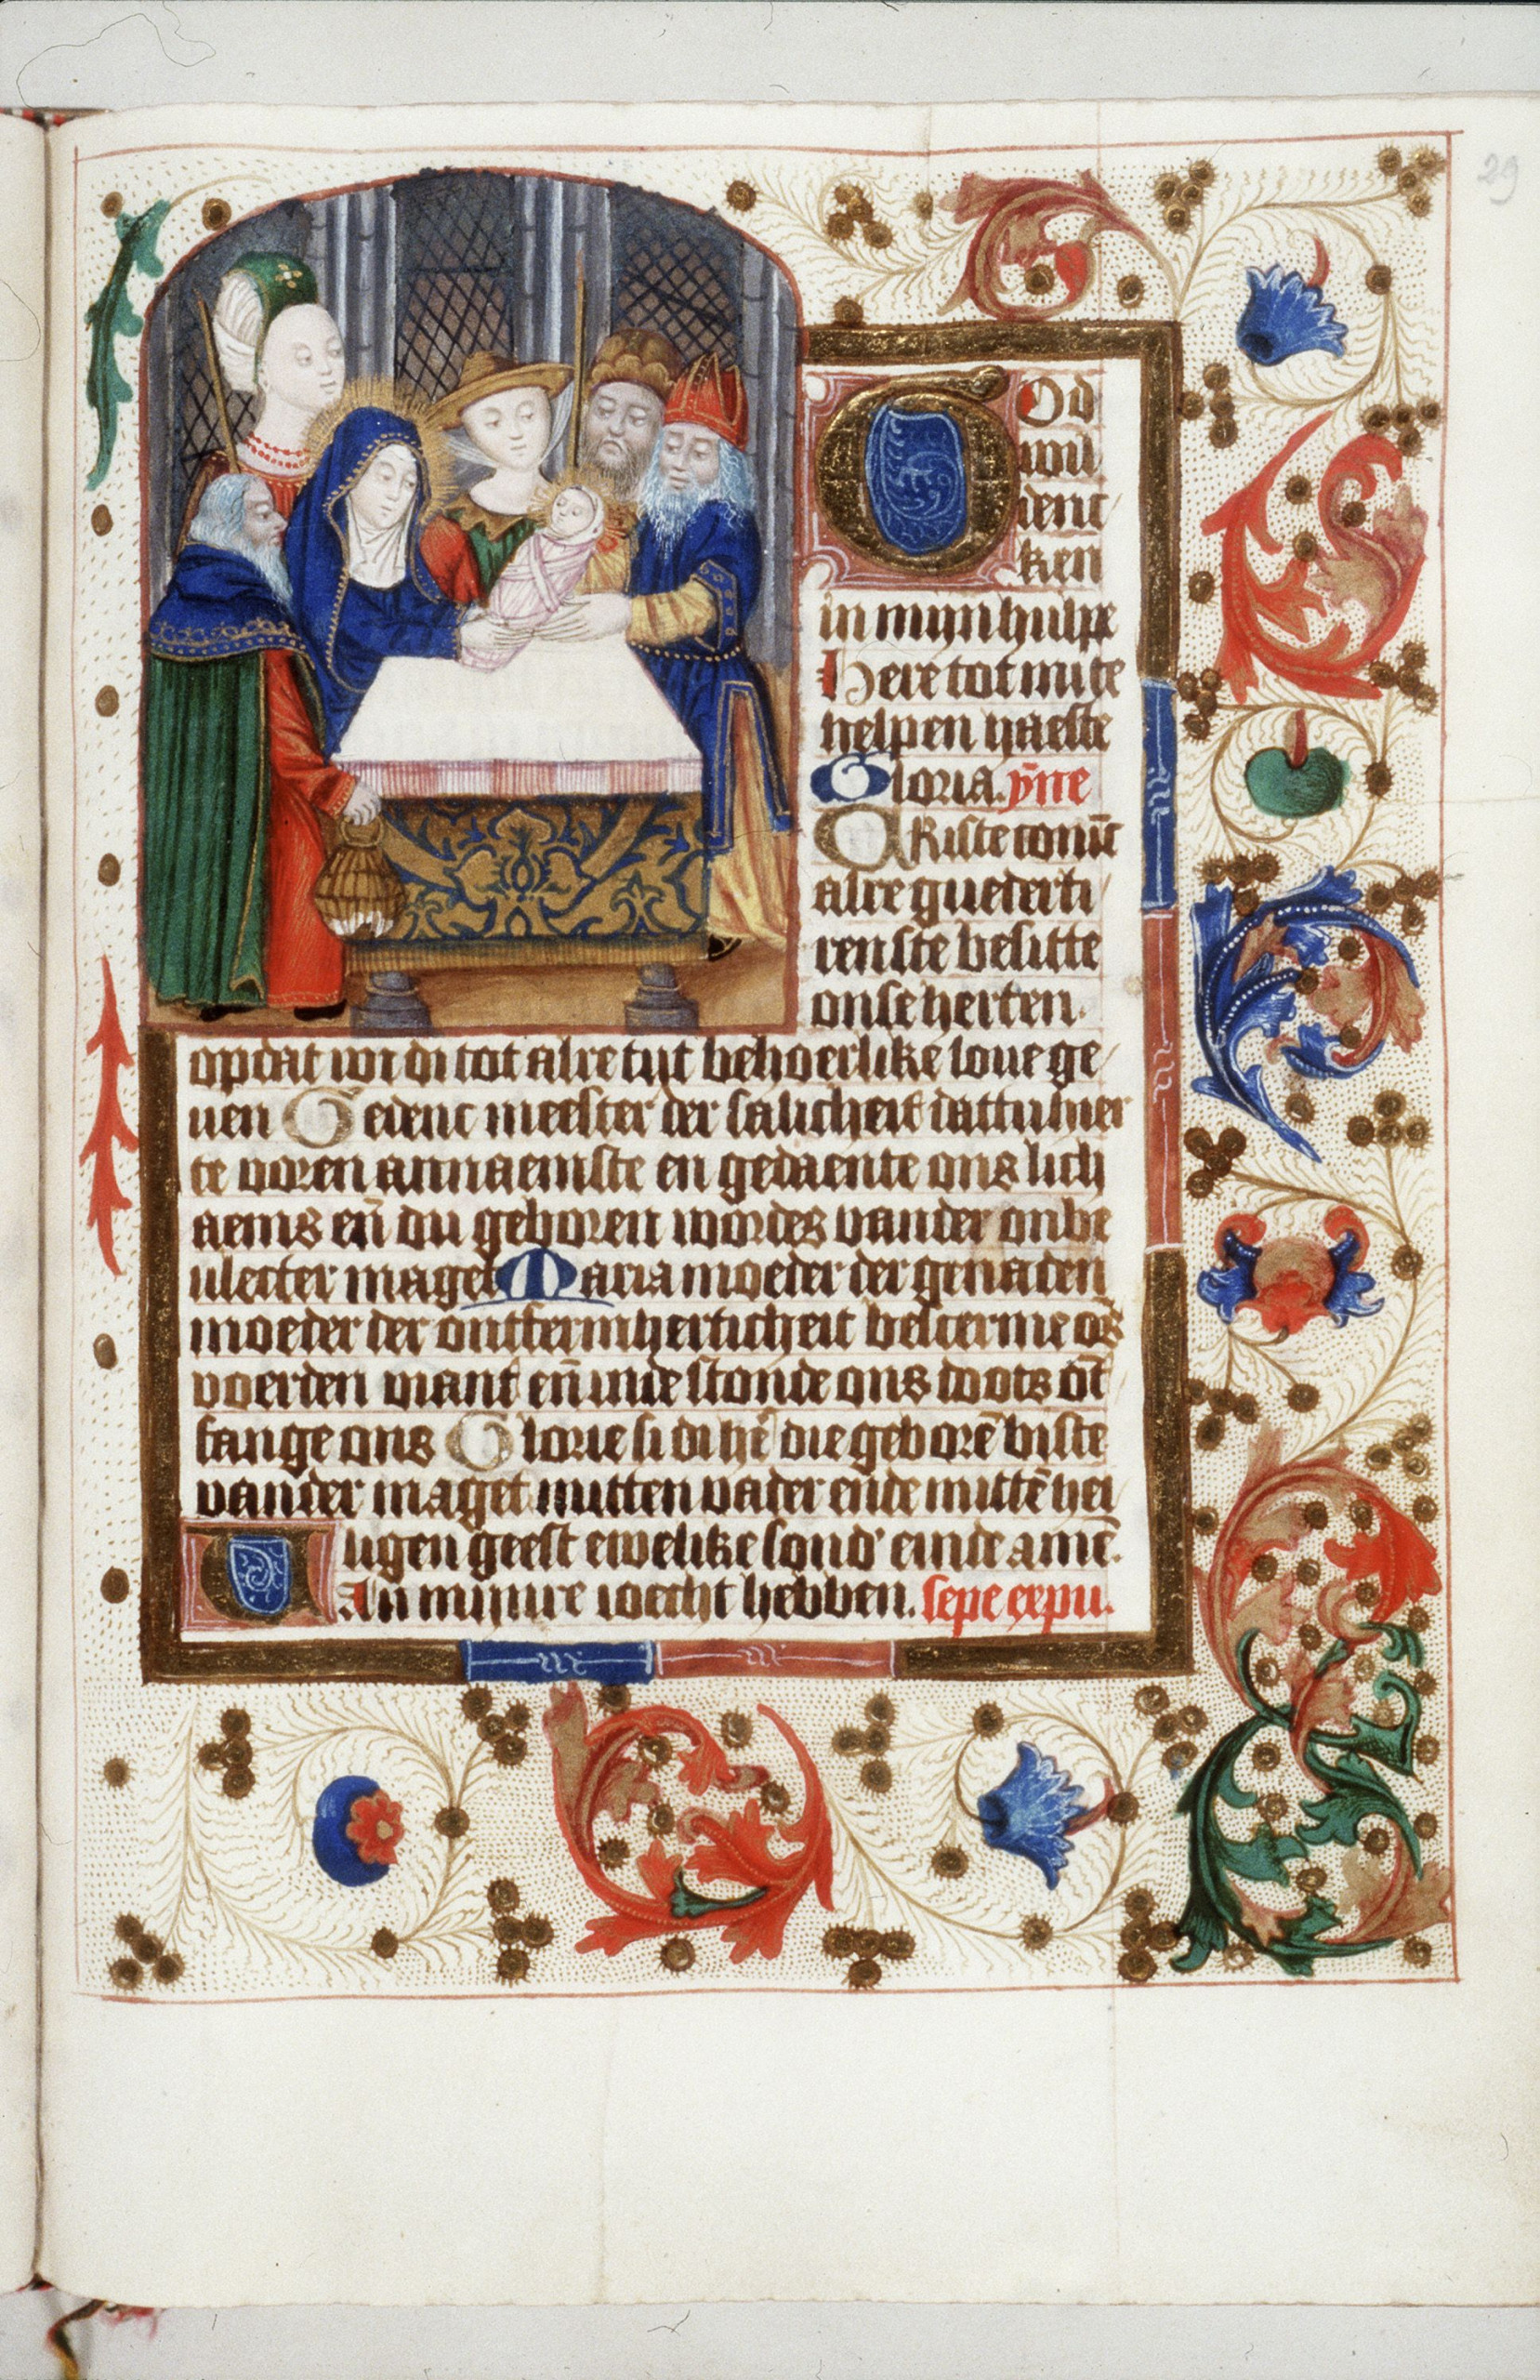 29
God
wil
denc
ken
in mijn hulpe
Here tot mi te
helpen haeste
Gloria. ẏm̄e
Kriste comt
alre guederti
renste besitte
onse herten.
opdat wi di tot alre tijt behoerlike loue ge
uen Gedenc meester der salicheit dattu hier
te voren annaemste en gedaente ons lich
aems en̄ du geboren wordes vander onbe
ulecter maget Maria moeder der genaden
moeder der ontfermherticheit bescerme ōs
voerden viant en̄ inde stonde ons doots ōt
fange ons Glorie si di hē die geborē biste
vander maget mitten vader ende mittē hei
ligen geest ewelike sond' einde amē.
Van minure ioecht hebben. sepe expu.